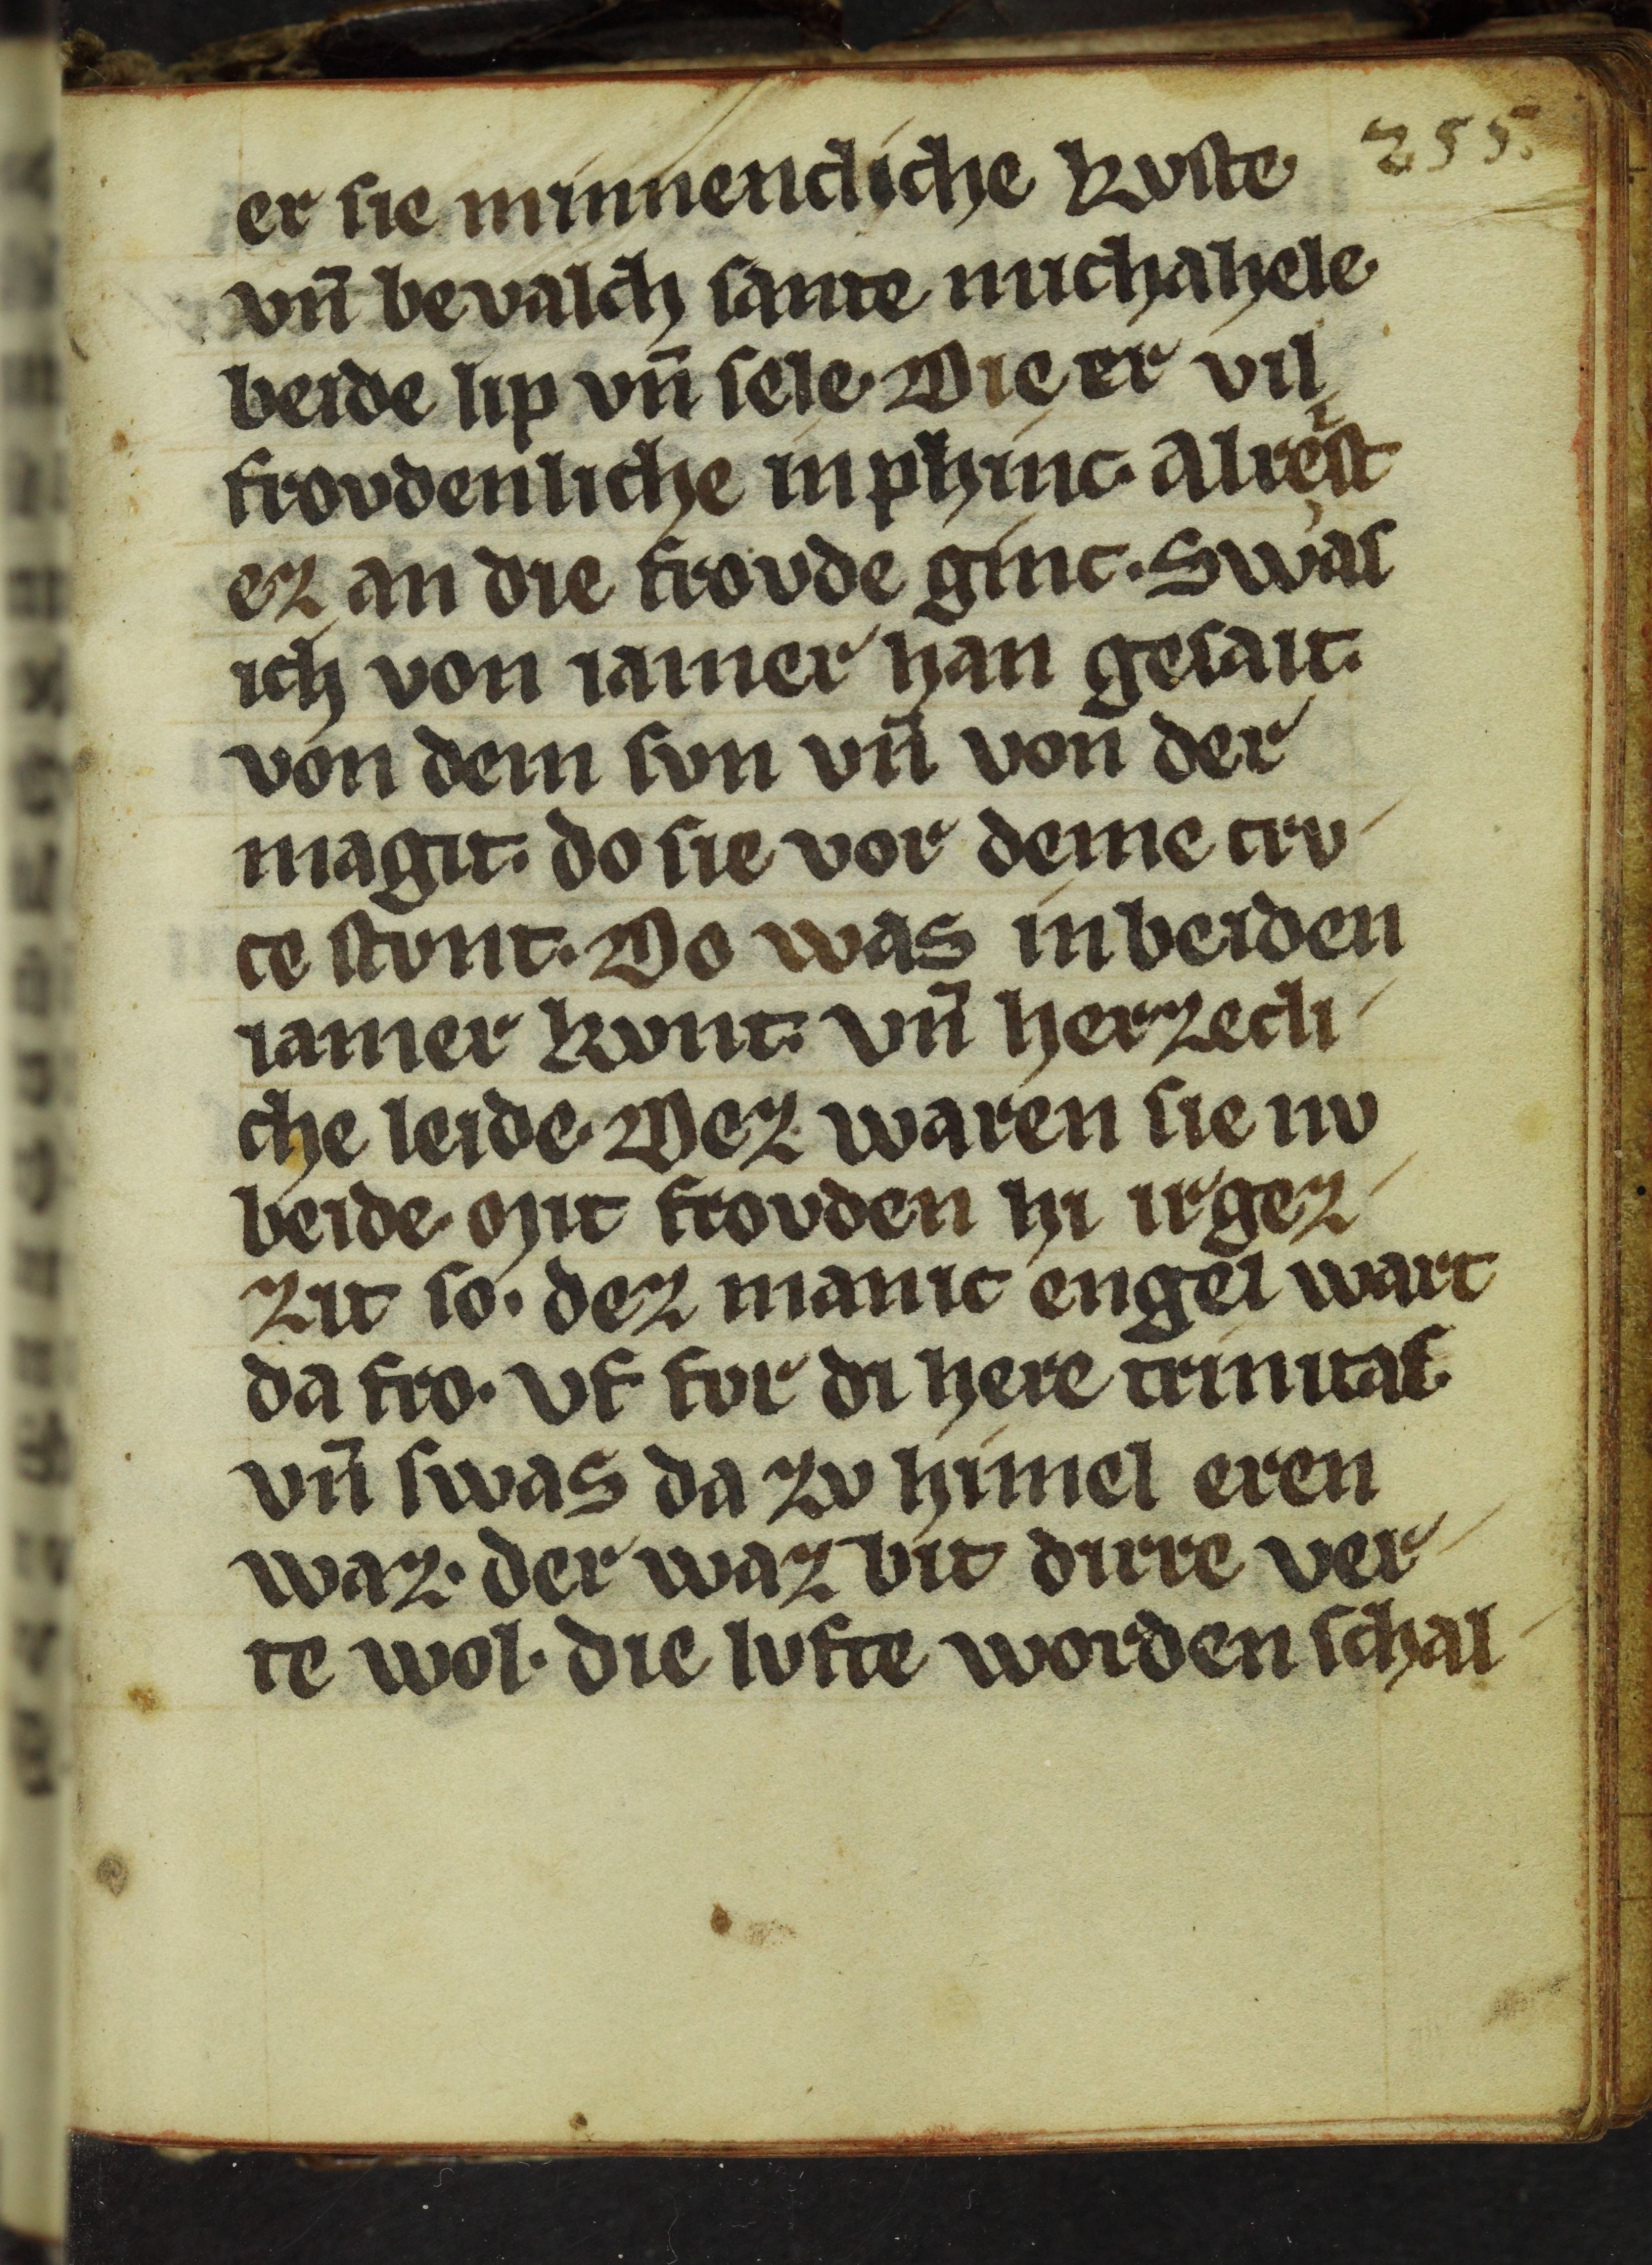 255.
er sie minnencliche kuste
vn̄ bevalch sante michahele
beide lip vn̄ sele. Die er vil
frovdenliche inphinc. Alrest
ez an die frovde ginc. Swas
ich von iamer han gesait.
von dem svn vn̄ von der
magit. do sie vor deme crv-
ce stvnt. Do was in beiden
iamer kvnt. vn̄ herzecli-
che leide. Dez waren sie nv
beide. Mit frovden hi irgez-
zit so. dez manic engel wart
da fro. vf fvr di here trinitas.
vn̄ swas da zv himel eren
waz. der waz bit dirre ver-
te wol. die lvfte worden schal-